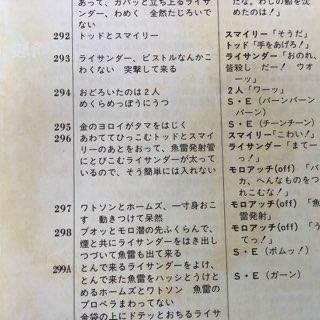 あって、ガバッと立ち上るライサ
ンダー、わめく 全然たじろいで
ない
292 トッドとスマイリー
293 ライサンダー、ピストルなんかこ
わくない 突撃して来る
294 おどろいたのは2人
めくらめっぽうにうつ
295 金のヨロイがタマをはじく
296 あわててひっこむトッドとスマイ
リーのあとをおって、魚雷発射管
にとびこむライサンダーが太って
いるので、そう簡単には入れない
297 ワトソンとホームズ、一寸身おこ
す 動きつけて呆然
298 ブオッとモロ潜の先ふくらんで、
煙と共にライサンダーをはき出し
つづいて魚雷も出て来る
299A とんで来るライサンダーをよけ、
とんで来た魚雷をハッシとうけと
めるホームズとワトソン 魚雷の
プロペラまわってない
金袋の上にドテッとおちるライサ
たな。わしの船を沈
めたのは!」
スマイリー「そうだ」
トッド「手をあげろ!」
ライサンダー「おのれ、
皆殺し だー! ウオ
ーッ」
2人「ワーッ」
S・E(バーンバーン
バーン)
S・E(チーンチーン)
スマイリー「こわい!」
ライサンダー「まてー
っ!」
モロアッチ(off)「バ
カ、へんなものをつ
れこむな!」
モロアッチ(off)「魚
雷発射」
モロアッチ(off)「う
てっ!」
S・E(ボムッ!)
S・E(ガーン)